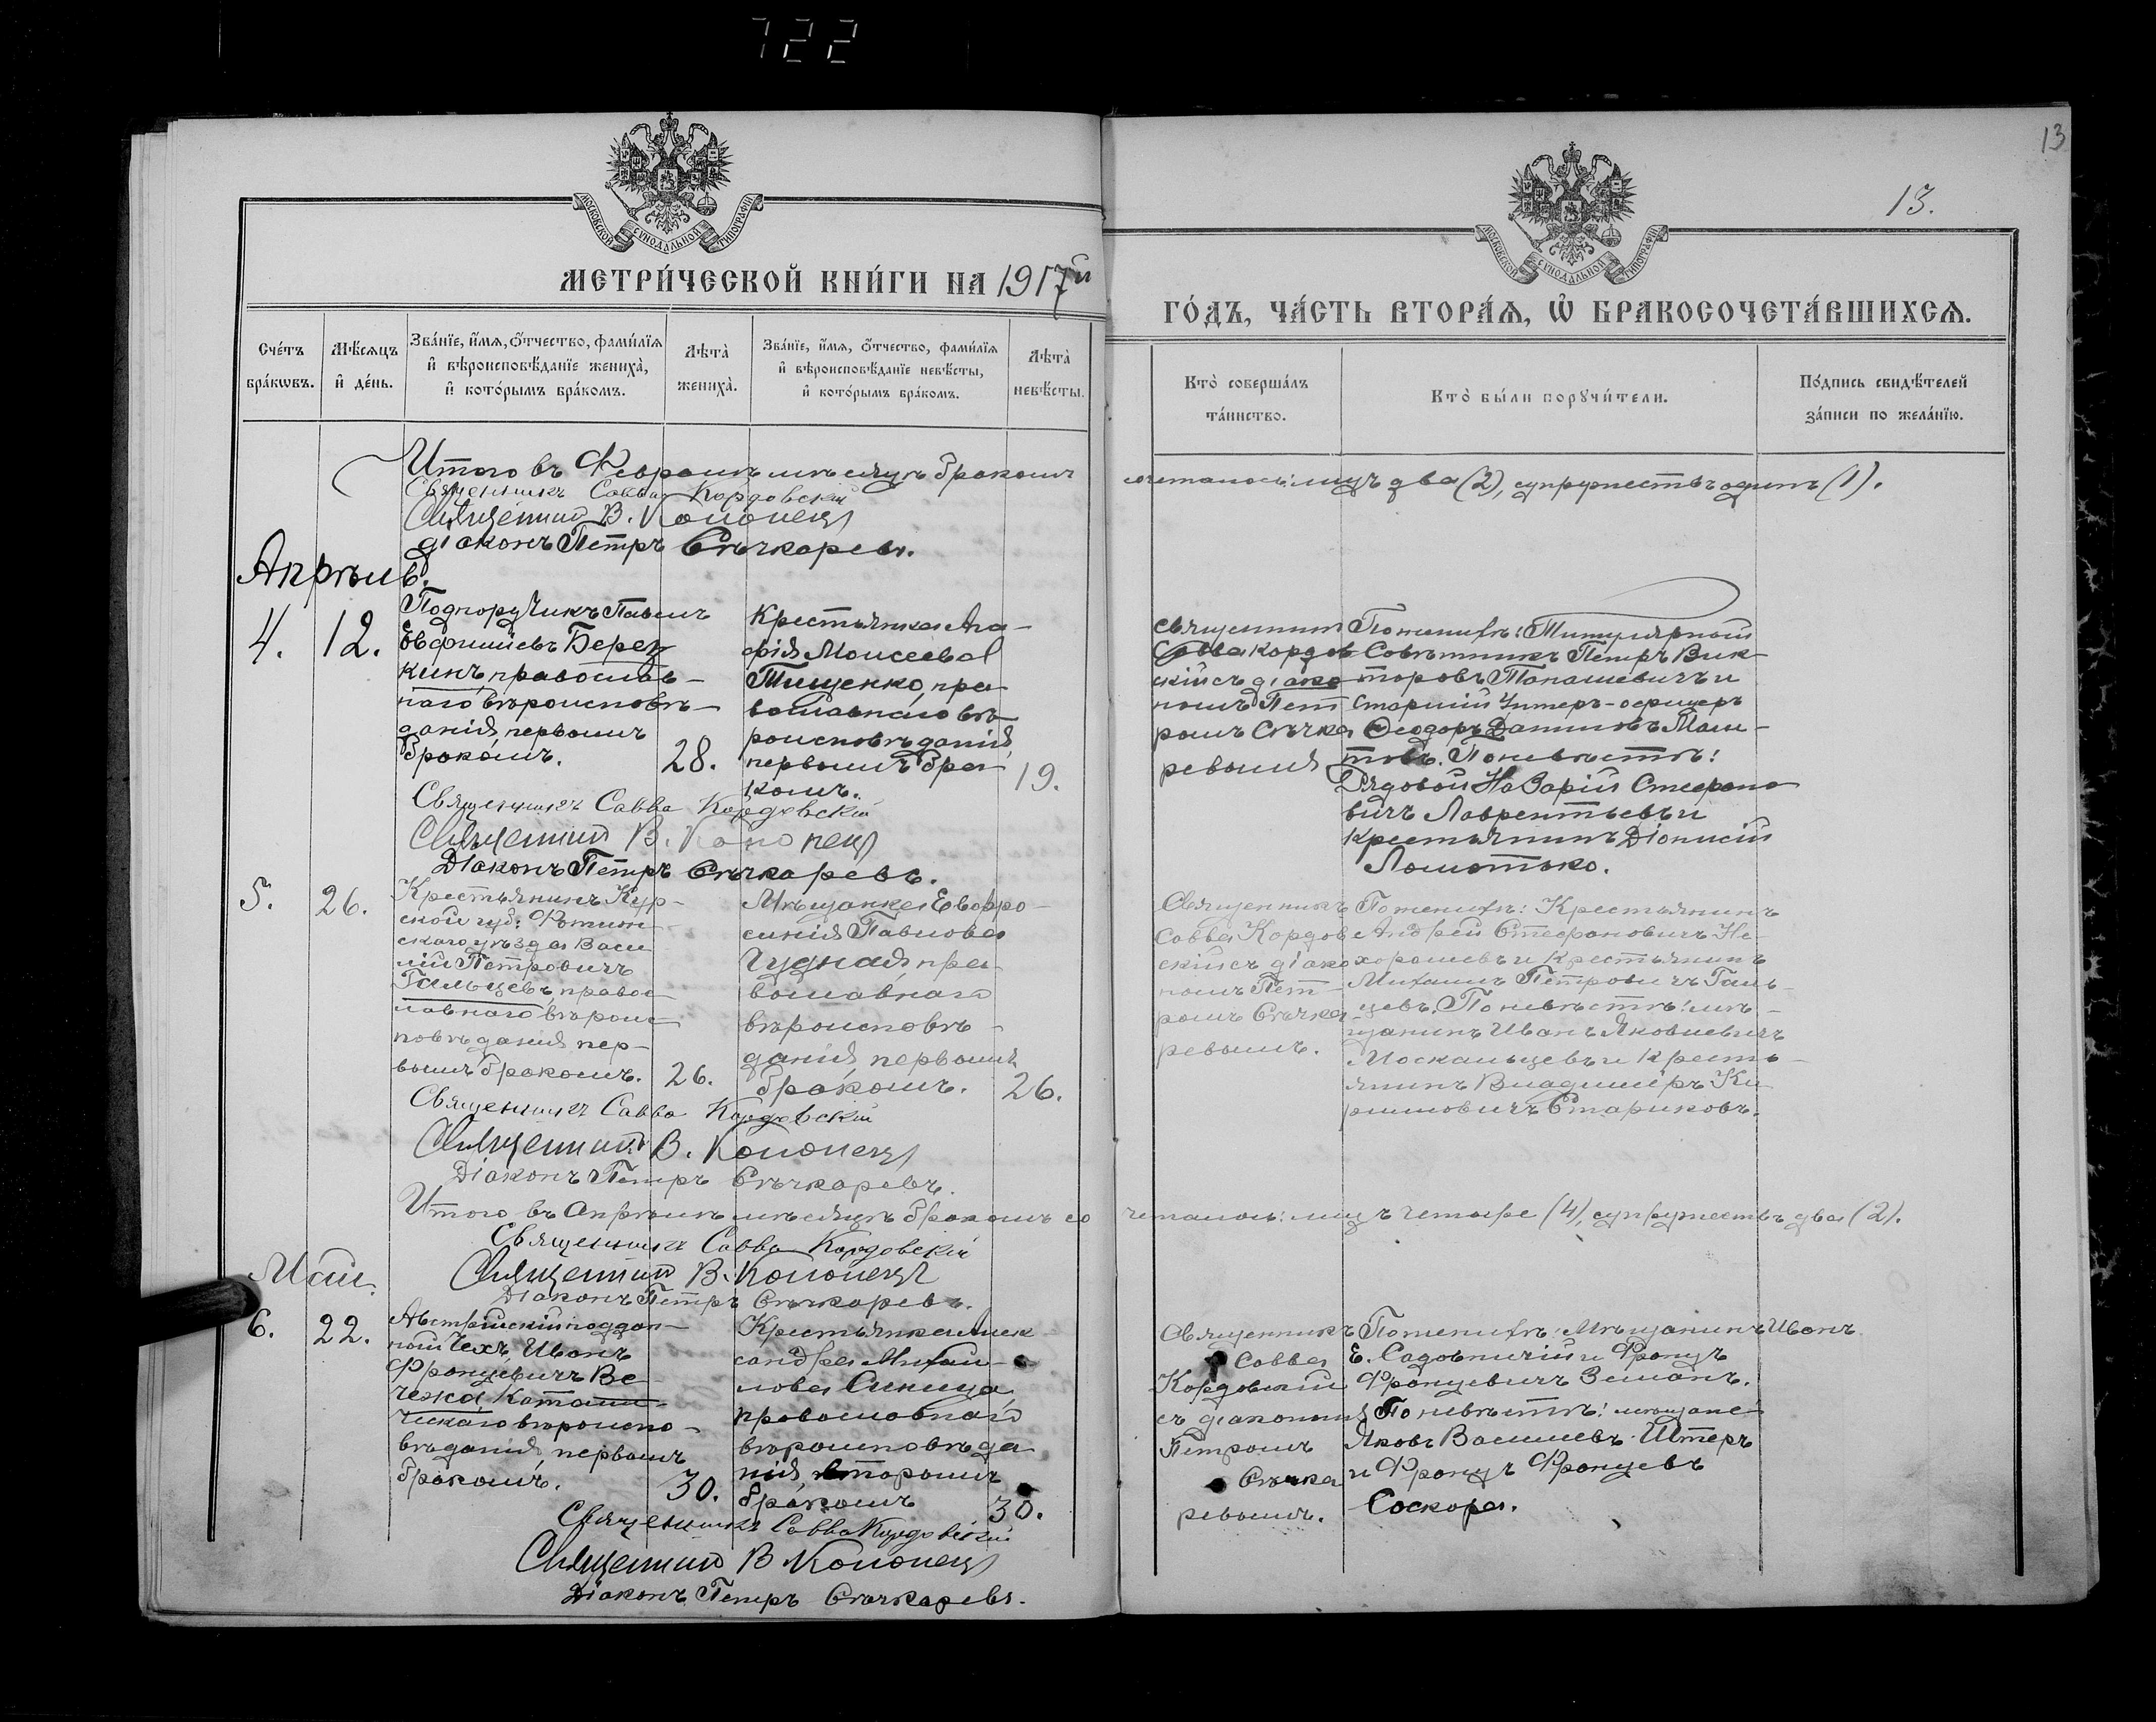 722
13
13.
МОСКОВСКОЙ СУНОДАЛЬНОЙ ТИПОГРАФІИ
МОСКОВСКОЙ СУНОДАЛЬНОЙ ТИПОГРАФІИ
МЕТРИ́ЧЕСКОЙ КНИ́ГИ НА 1917й
ГО́ДЪ, ЧА́СТЬ ВТОРА́Ѧ, Ѽ БРАКОСОЧЕТА́ВШИХСѦ.
Сче́тъ бра́кѡвъ.
Мѣ́сѧцъ и҆ де́нь.
Зва́нїе, и҆́мѧ, ѻ҆́тчество, фами́лїѧ и҆ вѣроисповѣ́данїе жениха̀, и҆ кото́рымъ бра́комъ.
Лѣта̀ жениха̀.
Зва́нїе, и҆́мѧ, ѻ҆́тчество, фами́лїѧ и҆ вѣроисповѣ́данїе невѣ́сты, и҆ кото́рымъ бра́комъ.
Лѣта̀ невѣ́сты.
Кто̀ соверша́лъ та́инство.
Кто̀ бы́ли порꙋчи́тели.
По́дпись свидѣ́телей за́писи по жела́нїю.
Итого въ Февралѣ мѣсяцѣ бракомъ
сочеталось: лицъ два (2), супружествъ одинъ (1).
Священникъ Савва Кордовскій
Священникъ В. Кононецъ
діаконъ Петръ Сѣчкаревъ.
Апрѣль.
4.
12.
Подпоручикъ Павелъ
Евфиміевъ Берез
кинъ, православ-
наго вѣроисповѣ-
данія, первымъ
бракомъ.
28.
Крестьянка Ага-
фія Моисеева
Тищенко, пра
вославнаго вѣ-
роисповѣданія,
первымъ бра
комъ.
19.
Священникъ
Савва Кордов
скій съ діако
номъ Пет
ромъ Сѣчка
ревымъ
По женихѣ: Титулярный
Совѣтникъ Петръ Вик-
торовъ Панашевичъ и
старшій Унтеръ-офицеръ
Ѳеодоръ Даниловъ Маш-
товъ. По невѣстѣ:
Рядовой Назарій Стефано
вичъ Лаврентьевъ и
крестьянинъ Діонисій
Ломотько.
Священникъ Савва Кордовскій
Священникъ В. Кононецъ
Діаконъ Петръ Сѣчкаревъ.
5.
26.
Крестьянинъ Кур-
ской губ.
скаго уѣзда Васи
лій Петровичъ
Гальцевъ, правос
лавнаго вѣроис
повѣданія пер-
вымъ бракомъ.
26.
Мѣщанка Евфро-
синія Павлова
Чудная, пра
вославнаго
вѣроисповѣ-
данія, первымъ
бракомъ.
26.
Священникъ
Савва Кордов
скій съ діако
номъ Пет-
ромъ Сѣчка
ревымъ.
По женихѣ: Крестьянинъ
Андрей Стефановичъ Не-
хорошевъ и Крестьянинъ
Михаилъ Петровичъ Галь-
цевъ. По невѣстѣ: мѣ-
щанинъ Иванъ Яковлевичъ
Москальцевъ и Кресть-
янинъ Владиміръ Ки
рилловичъ Стариковъ.
Священникъ Савва Кордовскій
Священникъ В. Кононецъ
Діаконъ Петръ Сѣчкаревъ.
Итого въ Апрѣлѣ мѣсяцѣ бракомъ со
четалось: лицъ четыре (4), супружествъ два (2).
Священникъ Савва Кордовскій
Священникъ В. Кононецъ
Діаконъ Петръ Сѣчкаревъ.
Май.
6.
22.
Австрійскій поддан-
ный Чехъ, Иванъ
Францевичъ Ве
чежа, Католи-
ческаго вѣроиспо-
вѣданія, первымъ
бракомъ.
30.
Крестьянка Алек
сандра Михаи-
лова Синица,
православнаго
вѣроисповѣда
нія, вторымъ
бракомъ
30.
Священникъ
Савва
Кордовскій
съ діакономъ
Петромъ
Сѣчка
ревымъ.
По женихѣ: Мѣщанинъ Иванъ
Е. Садовничій и Францъ
Францевичъ Земанъ.
По невѣстѣ: мѣщане
Яковъ Васильевъ Штеръ
и Францъ Францевъ
Соскора.
Священникъ Савва Кордовскій
Священникъ В. Кононецъ
Діаконъ Петръ Сѣчкаревъ.